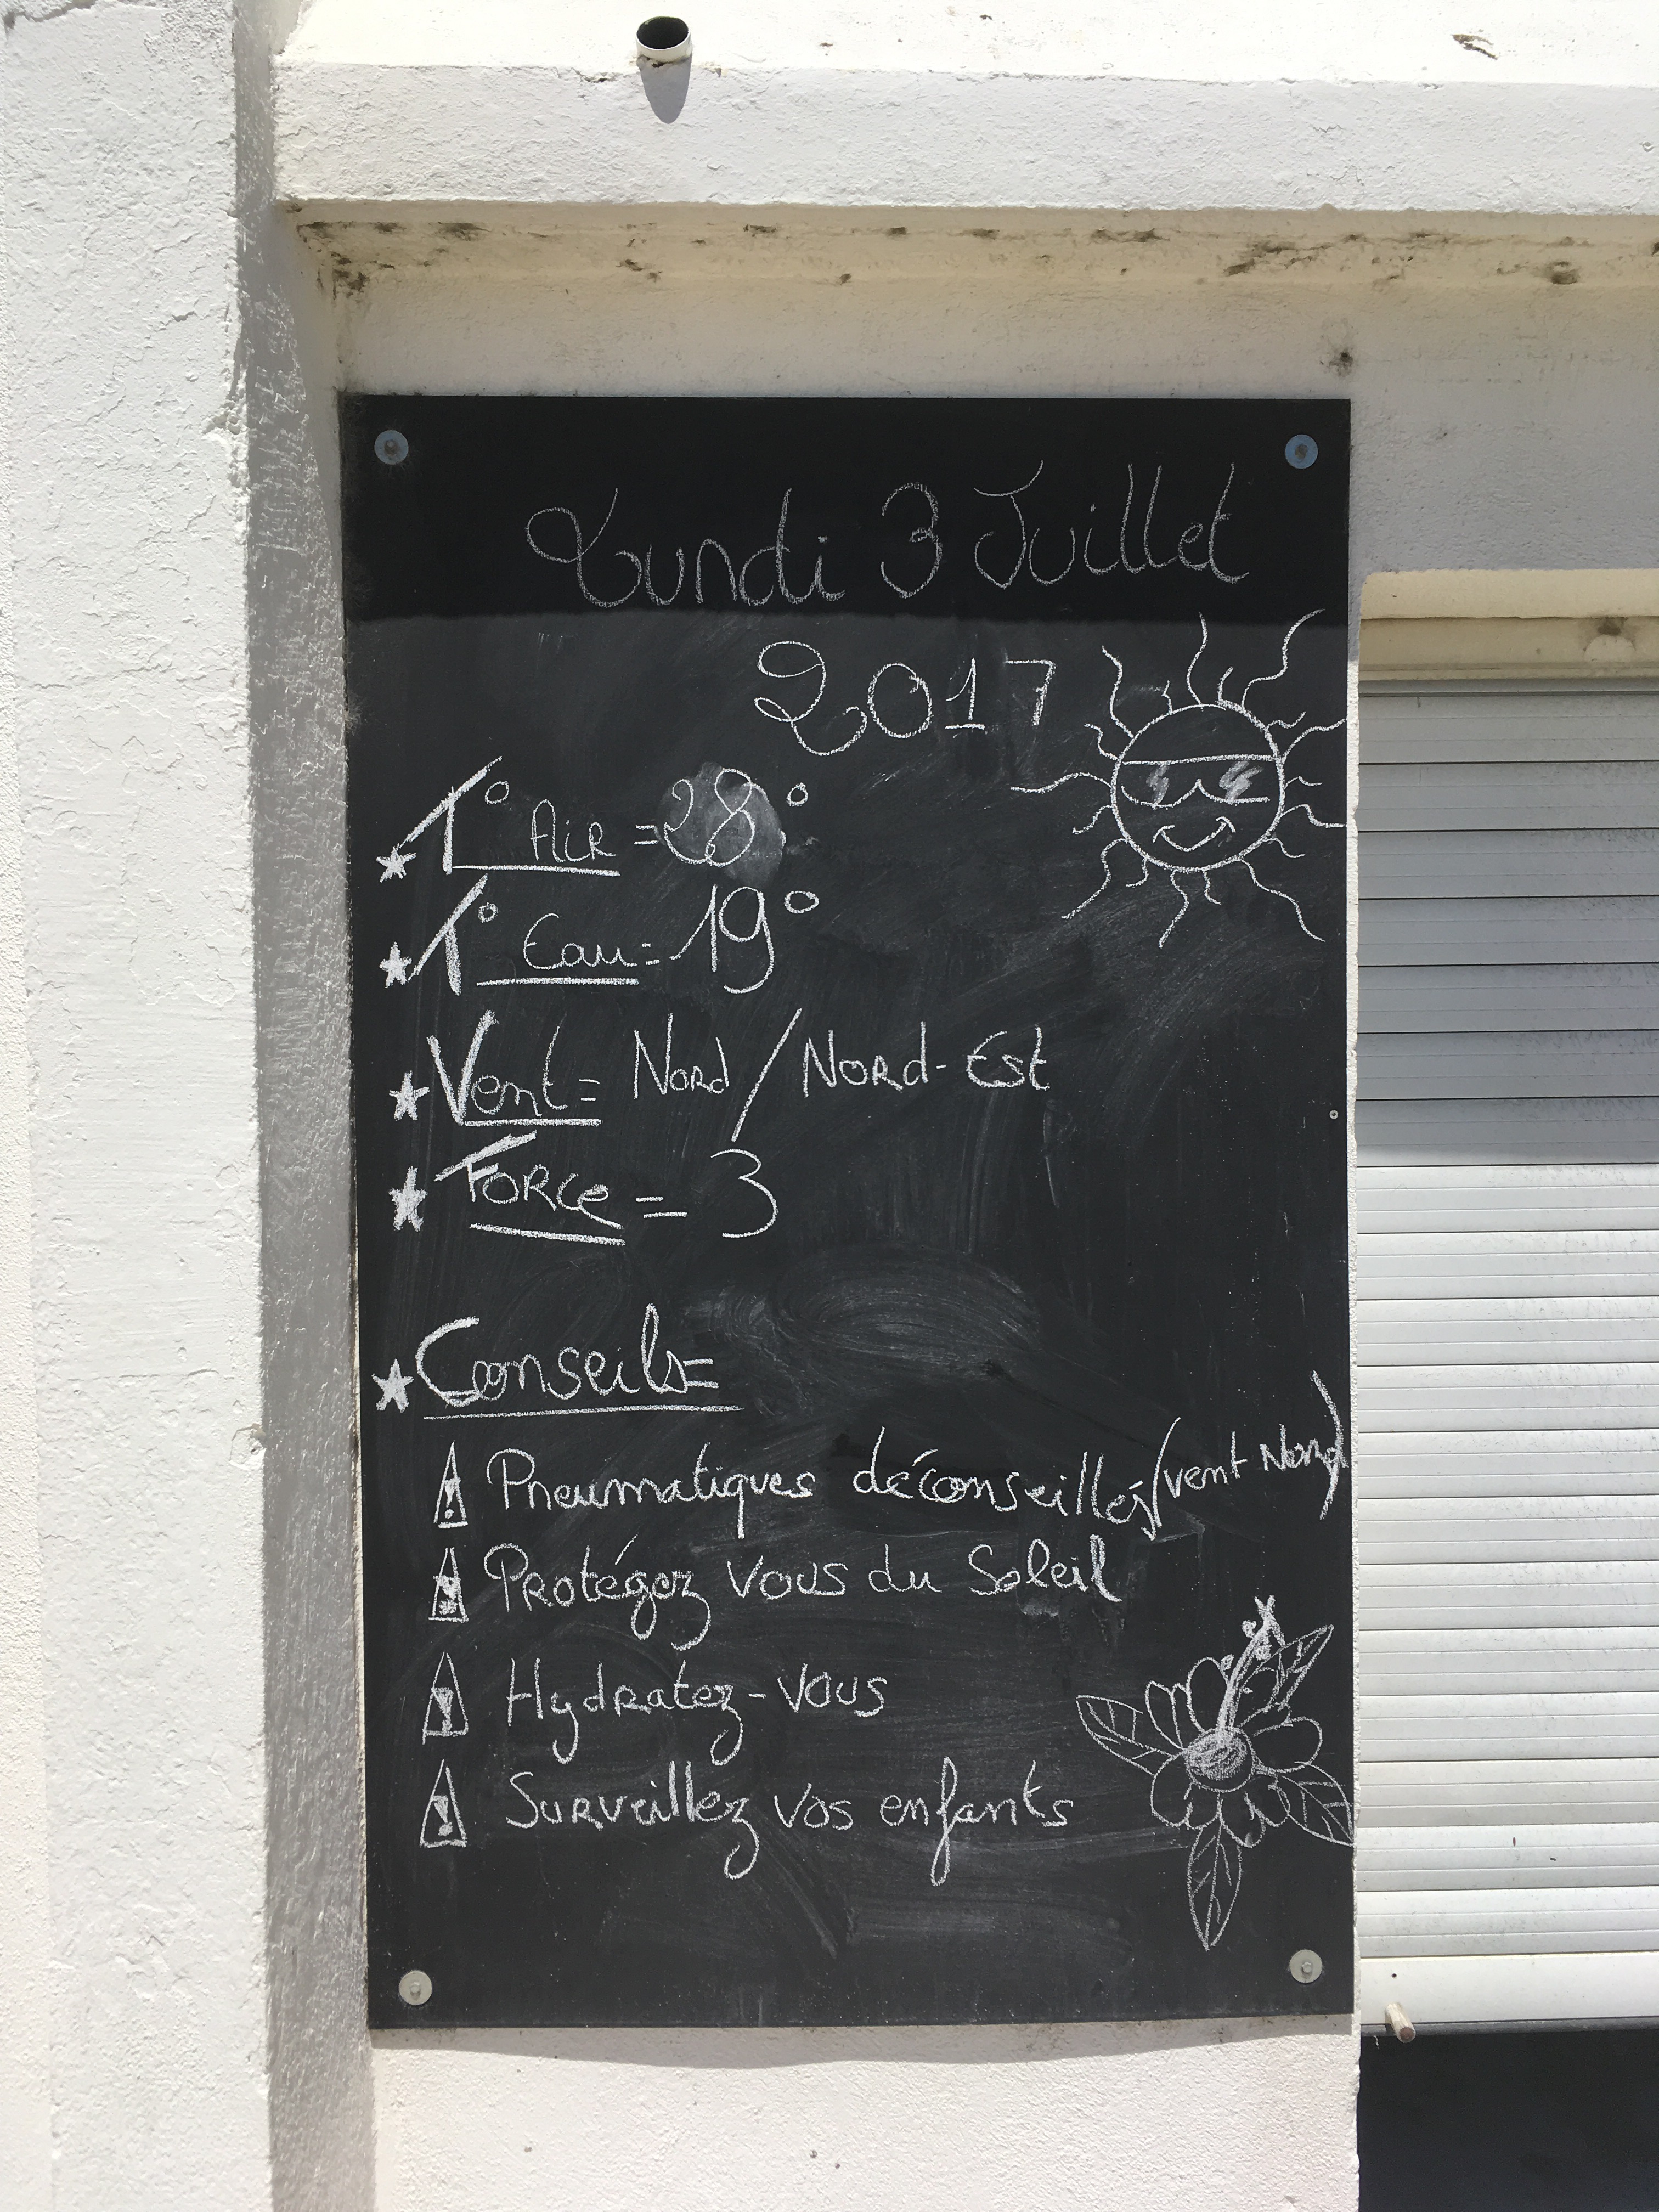 Lundi 3 Juillet
2017
T° Air = 28°
T° Eau = 19°
Vent = Nord / Nord-Est
Force = 3
Conseils =
Pneumatiques déconseillés (vent Nord)
Protégez vous du Soleil
Hydratez-vous
Surveillez vos enfants